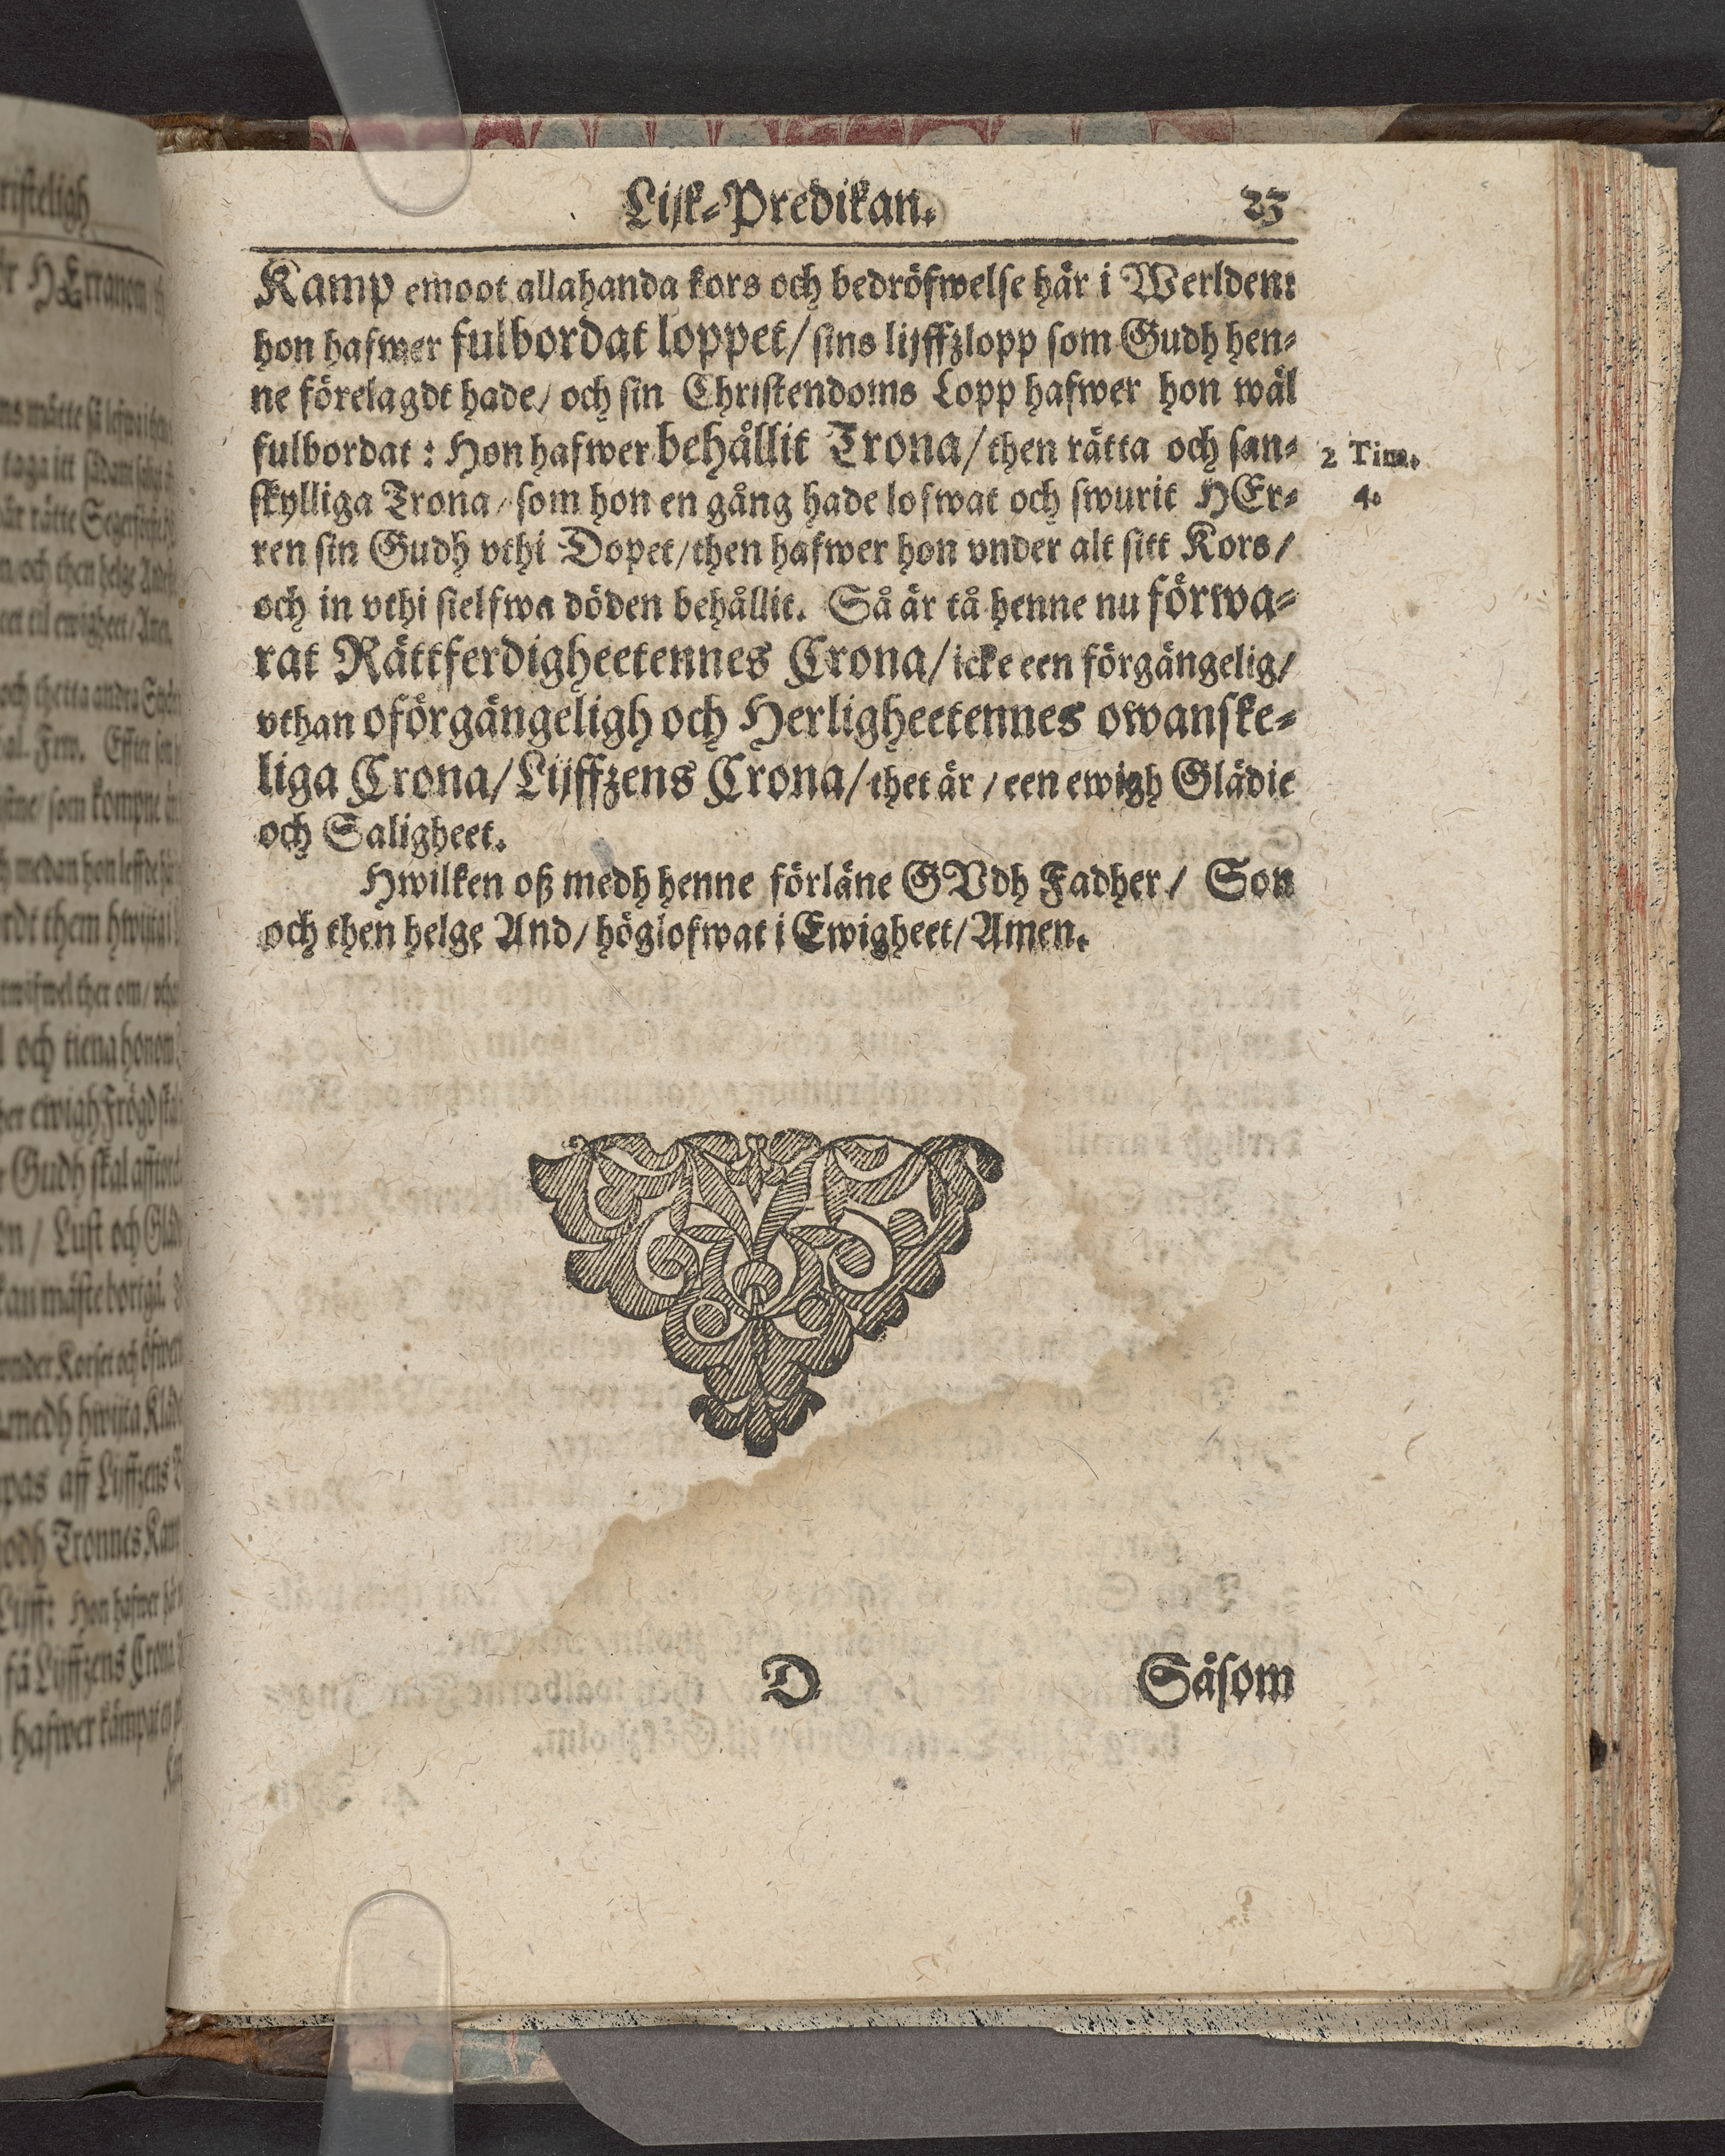 Lijk-Predikan. 23
Kamp emoot allahanda kors och bedröfwelse här i Werlden:
hon hafwer fulbordat loppet/ sins lijffzlopp som Gudh hen-
ne förelagdt hade/ och sin Christendoms Lopp hafwer hon wäl
fulbordat: Hon hafwer behållit Trona/ then rätta och san-
skylliga Trona/ som hon en gång hade lofwat och swurit HEr-
ren sin Gudh vthi Dopet/ then hafwer hon vnder alt sitt Kors/
och in vthi sielfwa döden behållit. Så är tå henne nu förwa-
rat Rättferdigheetennes Crona/ icke een förgängelig/
vthan oförgängeligh och Herligheetennes owanske-
liga Crona/ Lijffzens Crona/ thet är/ een ewigh Glädie
och Saligheet.
Hwilken oß medh henne förläne GVdh Fadher/ Son
och then helge And/ höglofwat i Ewigheet/ Amen.
2 Tim.
4.
D Såsom